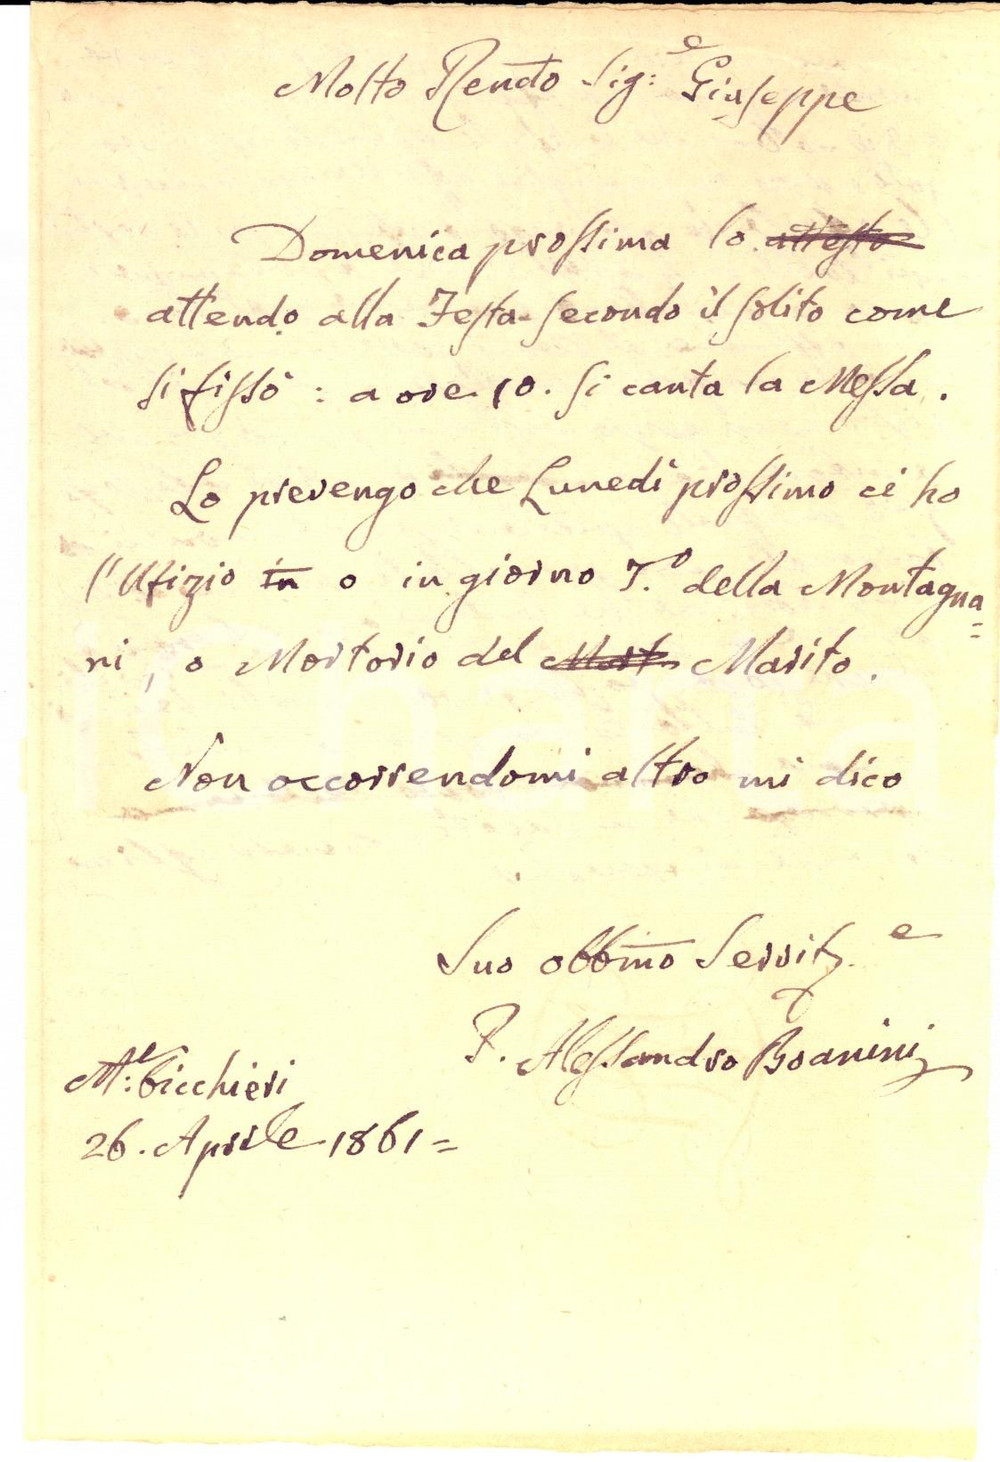 Molto Rendo Sig:e Giuseppe
Domenica prossima lo attesto
attendo alla Festa secondo il solito come
si fissò : a ore 10. si canta la Messa.
Lo prevengo che Lunedì prossimo ci ho
l'Ufizio in o in giorno 7.o della Montagna=
ni, o Mortorio del Mort Marito.
Non occorrendomi altro mi dico
Suo obbmo Servit.e
P. Alessandro Boanini
Bicchieri
26. Aprile 1861=